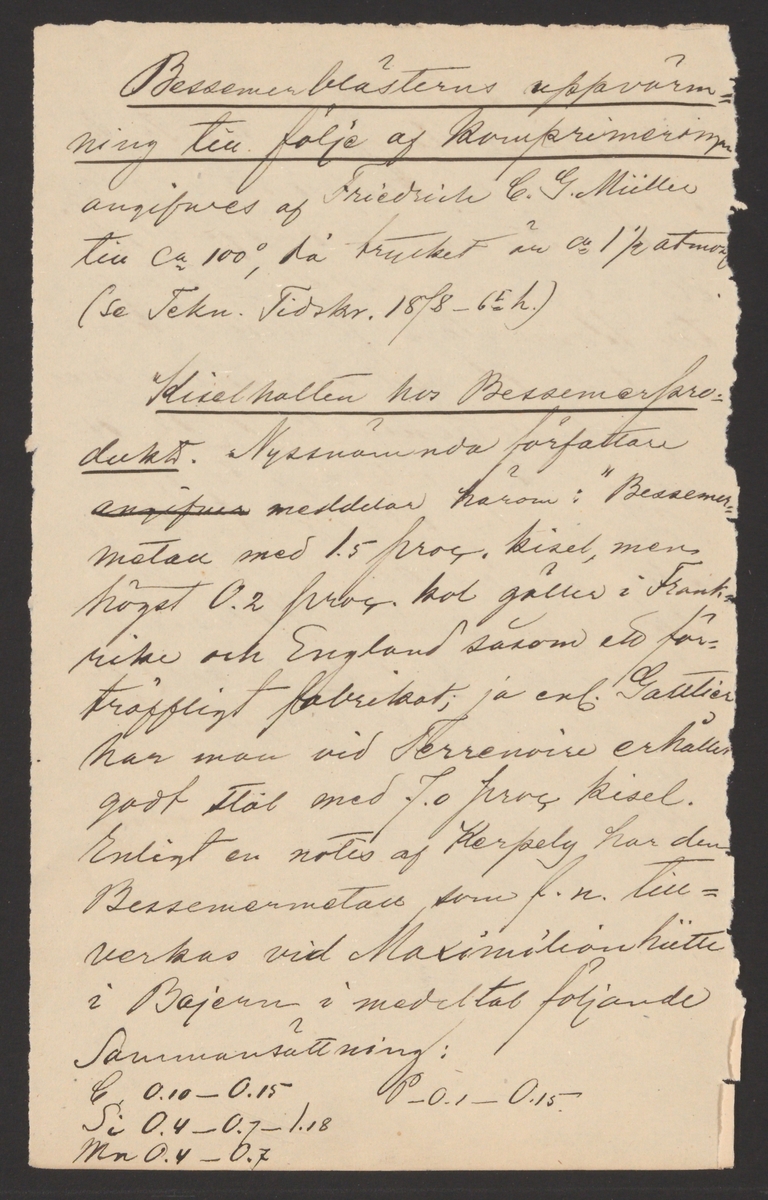 Bessemerblästerns uppvärm=
ning till följe af komprimeringen
angifves af Friedrich C. G. Müller
till ca 100°, då trycket är ca 1 1/2 atmosf
(se Tekn. Tidskr. 1878 - 6te h.)
"Kiselhalten hos Bessemerpro=
dukt. Nyssnämnda författare
angifver meddelar härom: "Bessemer=
metall med 1.5 proç. kisel, men
högst 0.2 proç. kol gäller i Frank=
rike och England såsom ett för=
träffligt fabrikat; ja enl. Gautier
har man vid Terrenoire erhållit
godt stål med 7.0 proç kisel.
Enligt en notis af Kerpely har den
Bessemermetall som f. n. till=
verkas vid Maximilianhütte
i Bajern i medeltal följande
Sammansättning:
C 0.10 - 0.15 P - 0.1 - 0.15
Si 0.4 - 0.7 - 1.18
Mn 0.4 - 0.7